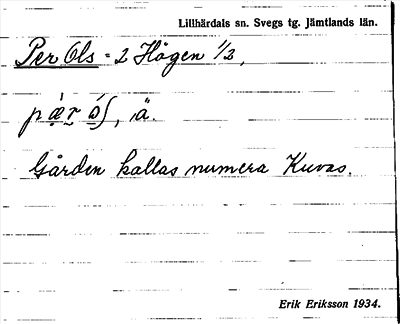 Lillhärdals sn. Svegs tg. Jämtlands län.
Per Ols - 2 Högen 1/3,
Gården kallas numera Kuvas.
Erik Eriksson 1934.